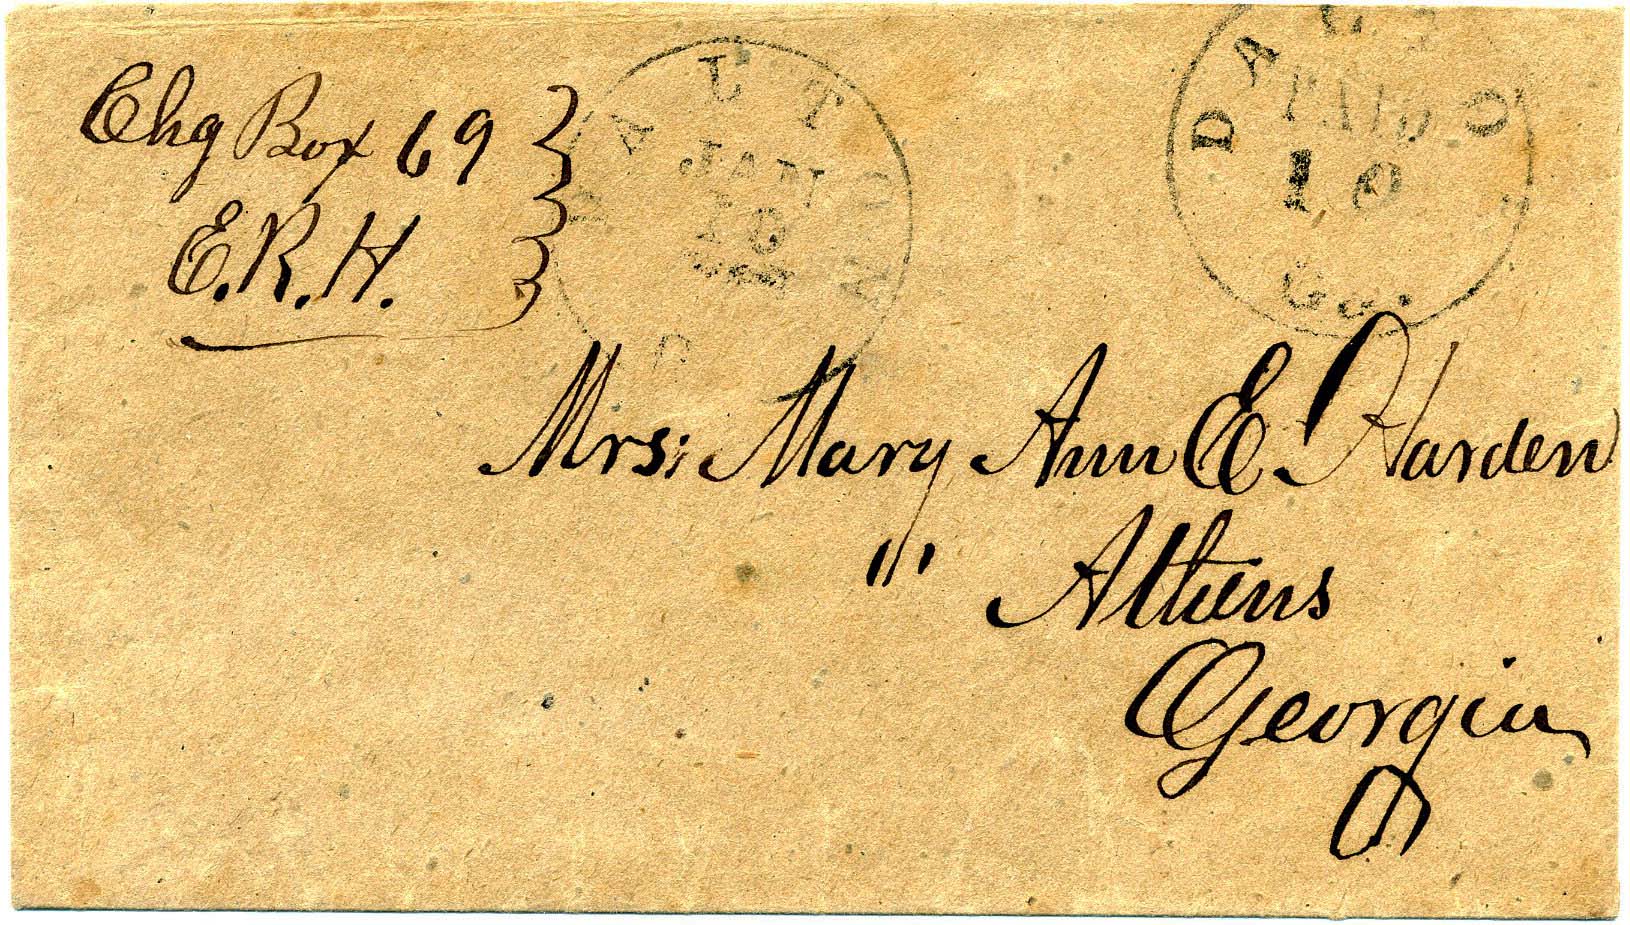 Chg Box 69
E.R.H.
DALTON
JAN
10
DALTON
PAID
10
Ga.
Mrs: Mary Ann E. Harden
"' Athens
Georgia